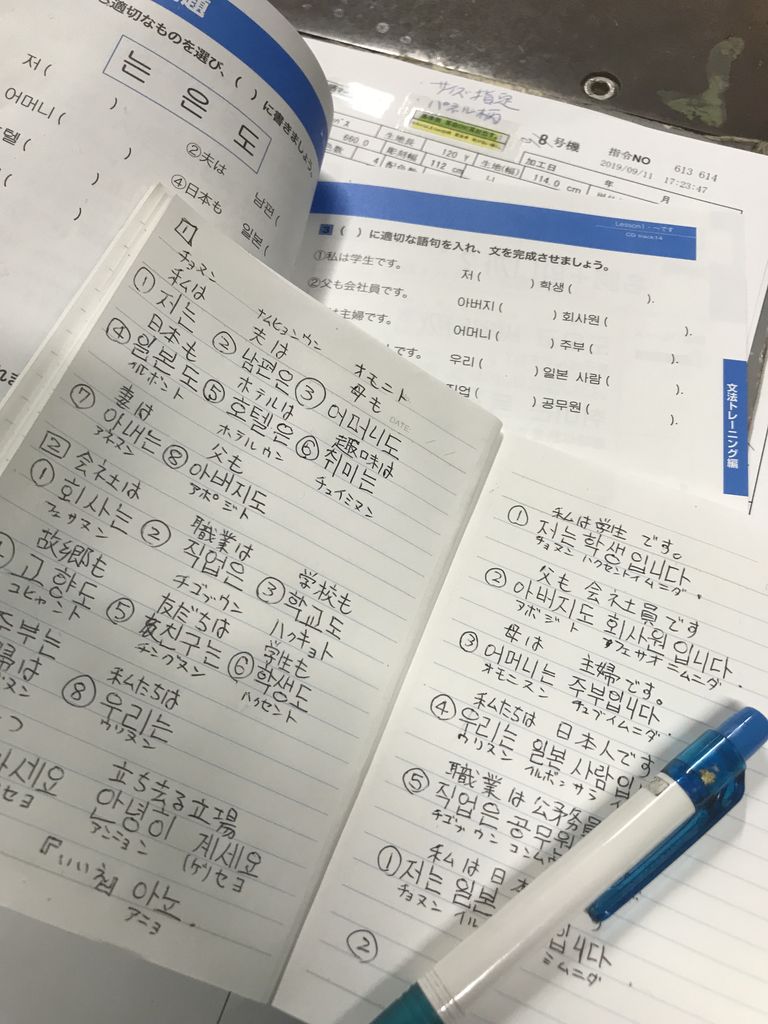 適切なものを選び、( )に書きましょう。
는 은 도
저 (
어머니 ( )
텔 ( )
②夫は 남편 (
④日本も 일본 (
サイズ指定
パネル柄
8号機 指令NO 613 614
660.0 生地長 120 Y 生地(幅) 加工日 2019/09/11 17:23:47
4 彫刻幅 112 cm 114.0 cm 年 月
Lesson1 ・〜です
CD track14
3 ( )に適切な語句を入れ、文を完成させましょう。
①私は学生です。 저 ( ) 학생 ( ).
②父も会社員です。 아버지 ( ) 회사원 ( ).
は主婦です。 어머니 ( ) 주부 ( ).
です。 우리 ( ) 일본 사람 ( ).
직업 ( ) 공무원 ( ).
文法トレーニング編
DATE
1
チョヌン
私は
① 저는
ナムピョンウン
夫は
② 남편은
オモニド
母も
③ 어머니도
日本も
④ 일본도
イルボンド
ホテルは
⑤ 호텔은
ホテルウン
趣味は
⑥ 취미는
チュイミヌン
妻は
⑦ 아내는
アネヌン
父も
⑧ 아버지도
アボジド
2
会社は
① 회사는
フェサヌン
職業は
② 직업은
チゴブウン
学校も
③ 학교도
ハクキョド
故郷も
고향도
コヒャンド
友だちは
⑤ 친구는
チングヌン
学生も
⑥ 학생도
ハクセンド
주부는
婦は
私たちは
⑧ 우리는
ウリヌン
세요
セヨ
立ち去る立場
안녕히 계세요
アンニョン (ゲ)セヨ
아뇨
アニョ
私は学生です。
① 저는 학생입니다.
チョヌン ハクセンイムニダ.
父も 会社員です
② 아버지도 회사원입니다.
アボジド フェサオニムニダ.
母は 主婦です。
③ 어머니는 주부입니다.
オモニヌン チュブイムニダ.
私たちは 日本人です
④ 우리는 일본 사람입
ウリヌン イルボン サ
職業は公務員
⑤ 직업은 공무원
チゴブウン コンム
私は日本
① 저는 일본 입니다
チョヌン イル ニムニダ
②